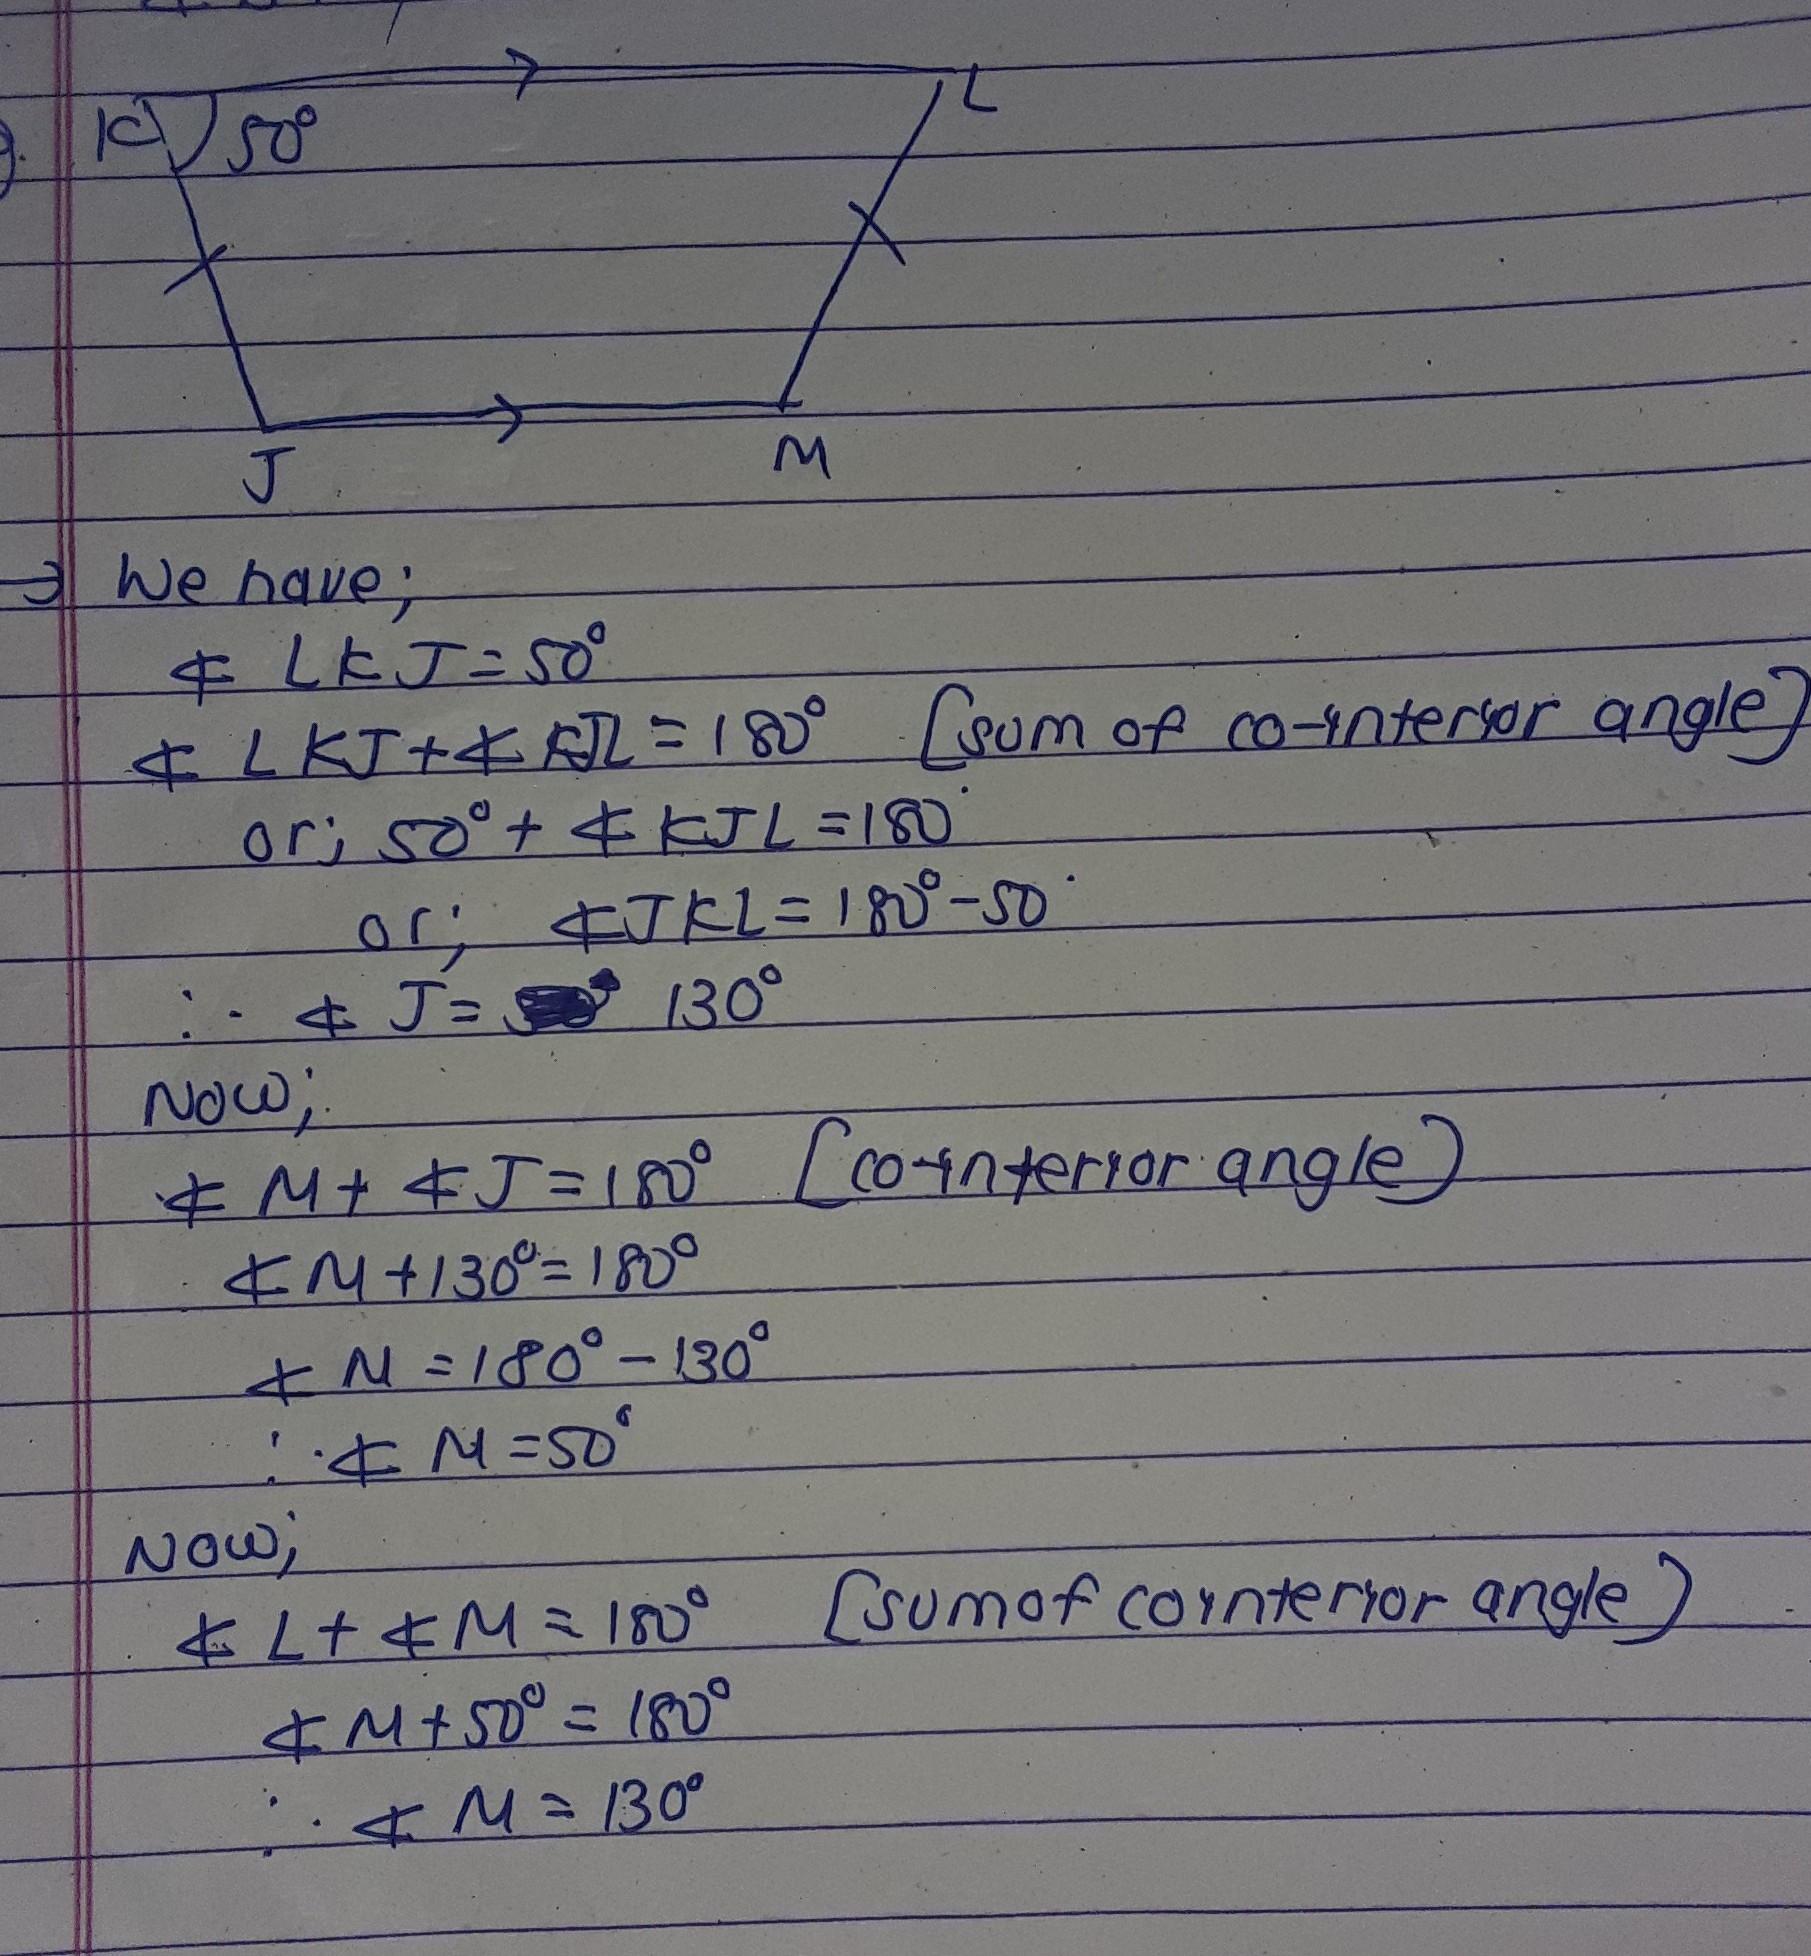 K 50° L
J M
→ We have;
∡ LKJ = 50°
∡ LKJ + ∡ KJL = 180° [sum of co-interior angle]
or; 50° + ∡ KJL = 180°
or; ∡JKL = 180° - 50°
∴ ∡ J = 130°
Now;
∡ M + ∡ J = 180° [co-interior angle]
∡ M + 130° = 180°
∡ M = 180° - 130°
∴ ∡ M = 50°
Now;
∡ L + ∡ M = 180° [sum of cointerior angle]
∡ M + 50° = 180°
∴ ∡ M = 130°